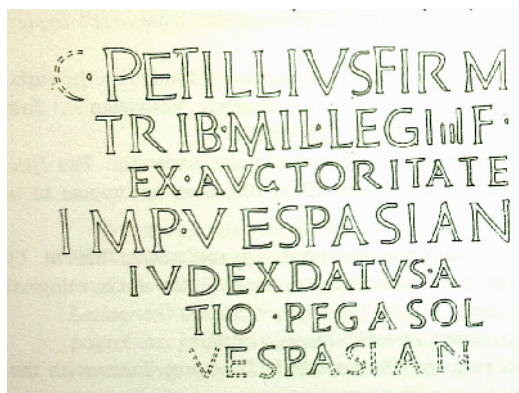 C· PETILLIVSFIRM
TRIB·MIL·LEGIIIIF·
EX·AVCTORITATE
IMP·VESPASIAN
IVDEXDATVS·A
TIO·PEGASOL
VESPASIAN